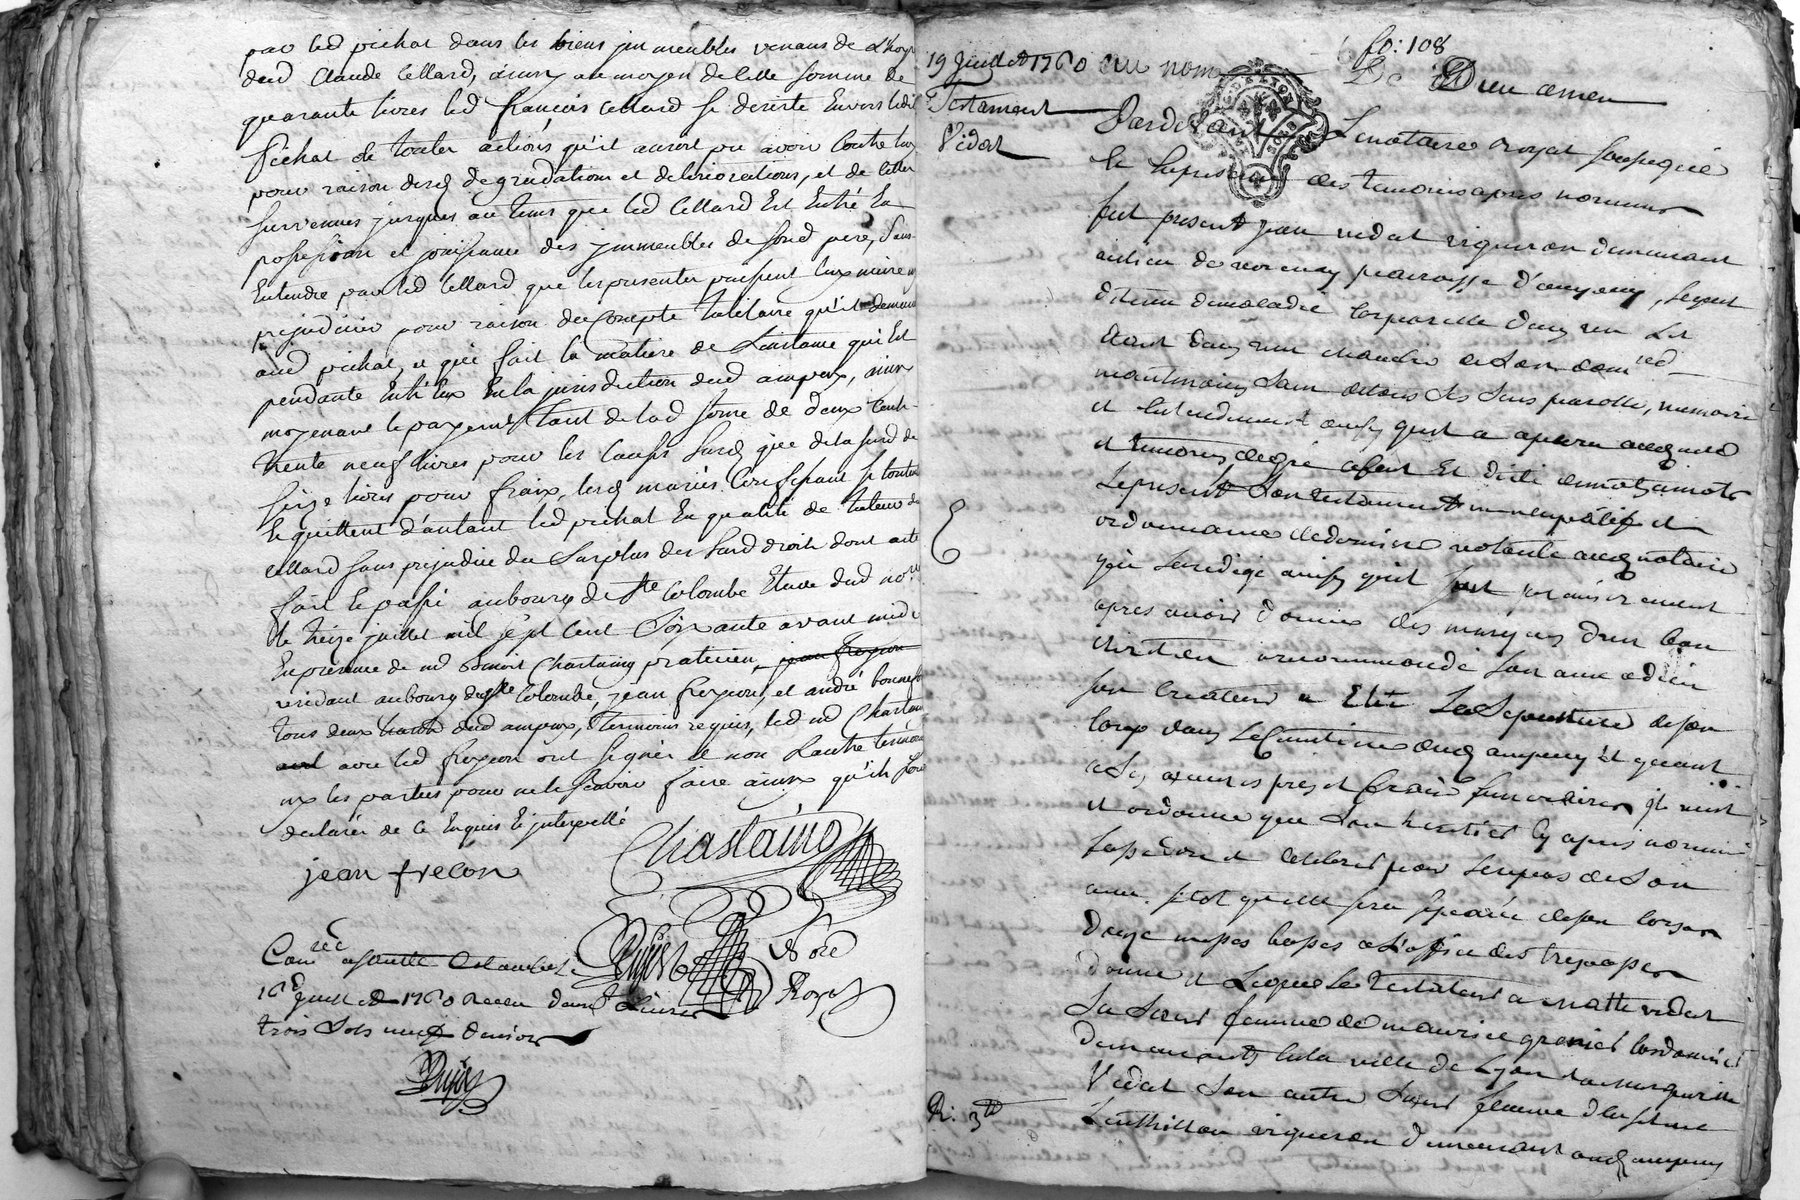 par led pichat dans les biens immeubles venans de
dud Claude Cellard, ainsy au moyen de cette somme de
quarante livres led françois Cellard se desiste Envers ledit
pichat de toutes actions qu'il auroit pu avoir Contre luy
pour raison desd degradations et deteriorations, et de celles
survenues jusques au tems que led Cellard Est Entré En
possession et jouissance des immeubles de sond pere, sans
Entendre par led Cellard que les presentes puissent luy nuire ny
prejudicier pour raison du Compte tutelaire qu'il demande
aud pichat, et qui fait la matiere de Linstance qui Est
pendante Entr'eux En la jurisdiction dud ampuis, ainsy
moyenant le payement tant de lad some de deux Cent
trente neuf livres pour les Causes susd que de la susd de
seize livres pour fraix, lesd mariés
Et quittent d'autant led pichat En qualité de tuteur dud
Cellard sans prejudice du Surplus des susd droits dont acte
fait Et passé au bourg de Ste Colombe Etude dud nore
le treize juillet mil sept Cent Soixante avant midi
En presence de md Benoit Chastaing praticien, jean frecon
residant au bourg dud Ste Colombe, jean frecon, et andré bonnef
tous deux dud ampuis, temoins requis, led md Chastaing
avec led frecon ont signé Et non Lautre temoin
ny les parties pour ne le sçavoir faire ainsy qu'ils l'ont
declaré de ce Enquis Et interpellé
Chastaing
jean frecon
Conlé a Ste Colombe le
Dujast Nore
16e juillet 1760 Receu douze Livres Royal
trois Sols neuf deniers
Dujast
fo: 108
19 Juillet 1760 au nom De Dieu amen
Testament
Vidal
Pardevant Le notaire royal soussigné
Et En presence des temoins apres nommes
fut present Jean vidal vigneron demeurant
au lieu de verenay parroisse d'ampuis, lequel
detenu de maladie Corporelle dans un Lit
Etant dans une chambre de Son domed
neantmoins sain de tous ses sens parolle, memoire
et Entendement ainsy quil a aparu aud notre
et temoins de gré a fait Et dicté de mot a mot
Le present Son testament nuncupatif et
ordonnance de derniere volonté aud notaire
qui la redige ainsy quil suit premierement
apres avoir donné des marques d'un bon
chretien a recommandé son ame a dieu
son Createur a Elû Sa Sepulture de son
Corps dans le Cimetiere dud ampuis Et quant
a ses obseques et fraix funeraires il veut
et ordonne que Son heritier cy apres nommé
fasse dire et celebrer pour le repos de Son
ame sitot qu'elle sera separée de son Corps
douze messes basses a L'office des trepassés
donne et Legue le testateur a vidal
Sa Sœur femme de maurice grenier Cordonnier
demeurants En la ville de Lyon
Vidal Son autre Sœur femme d'
vigneron demeurant aud ampuis
R: 3tt